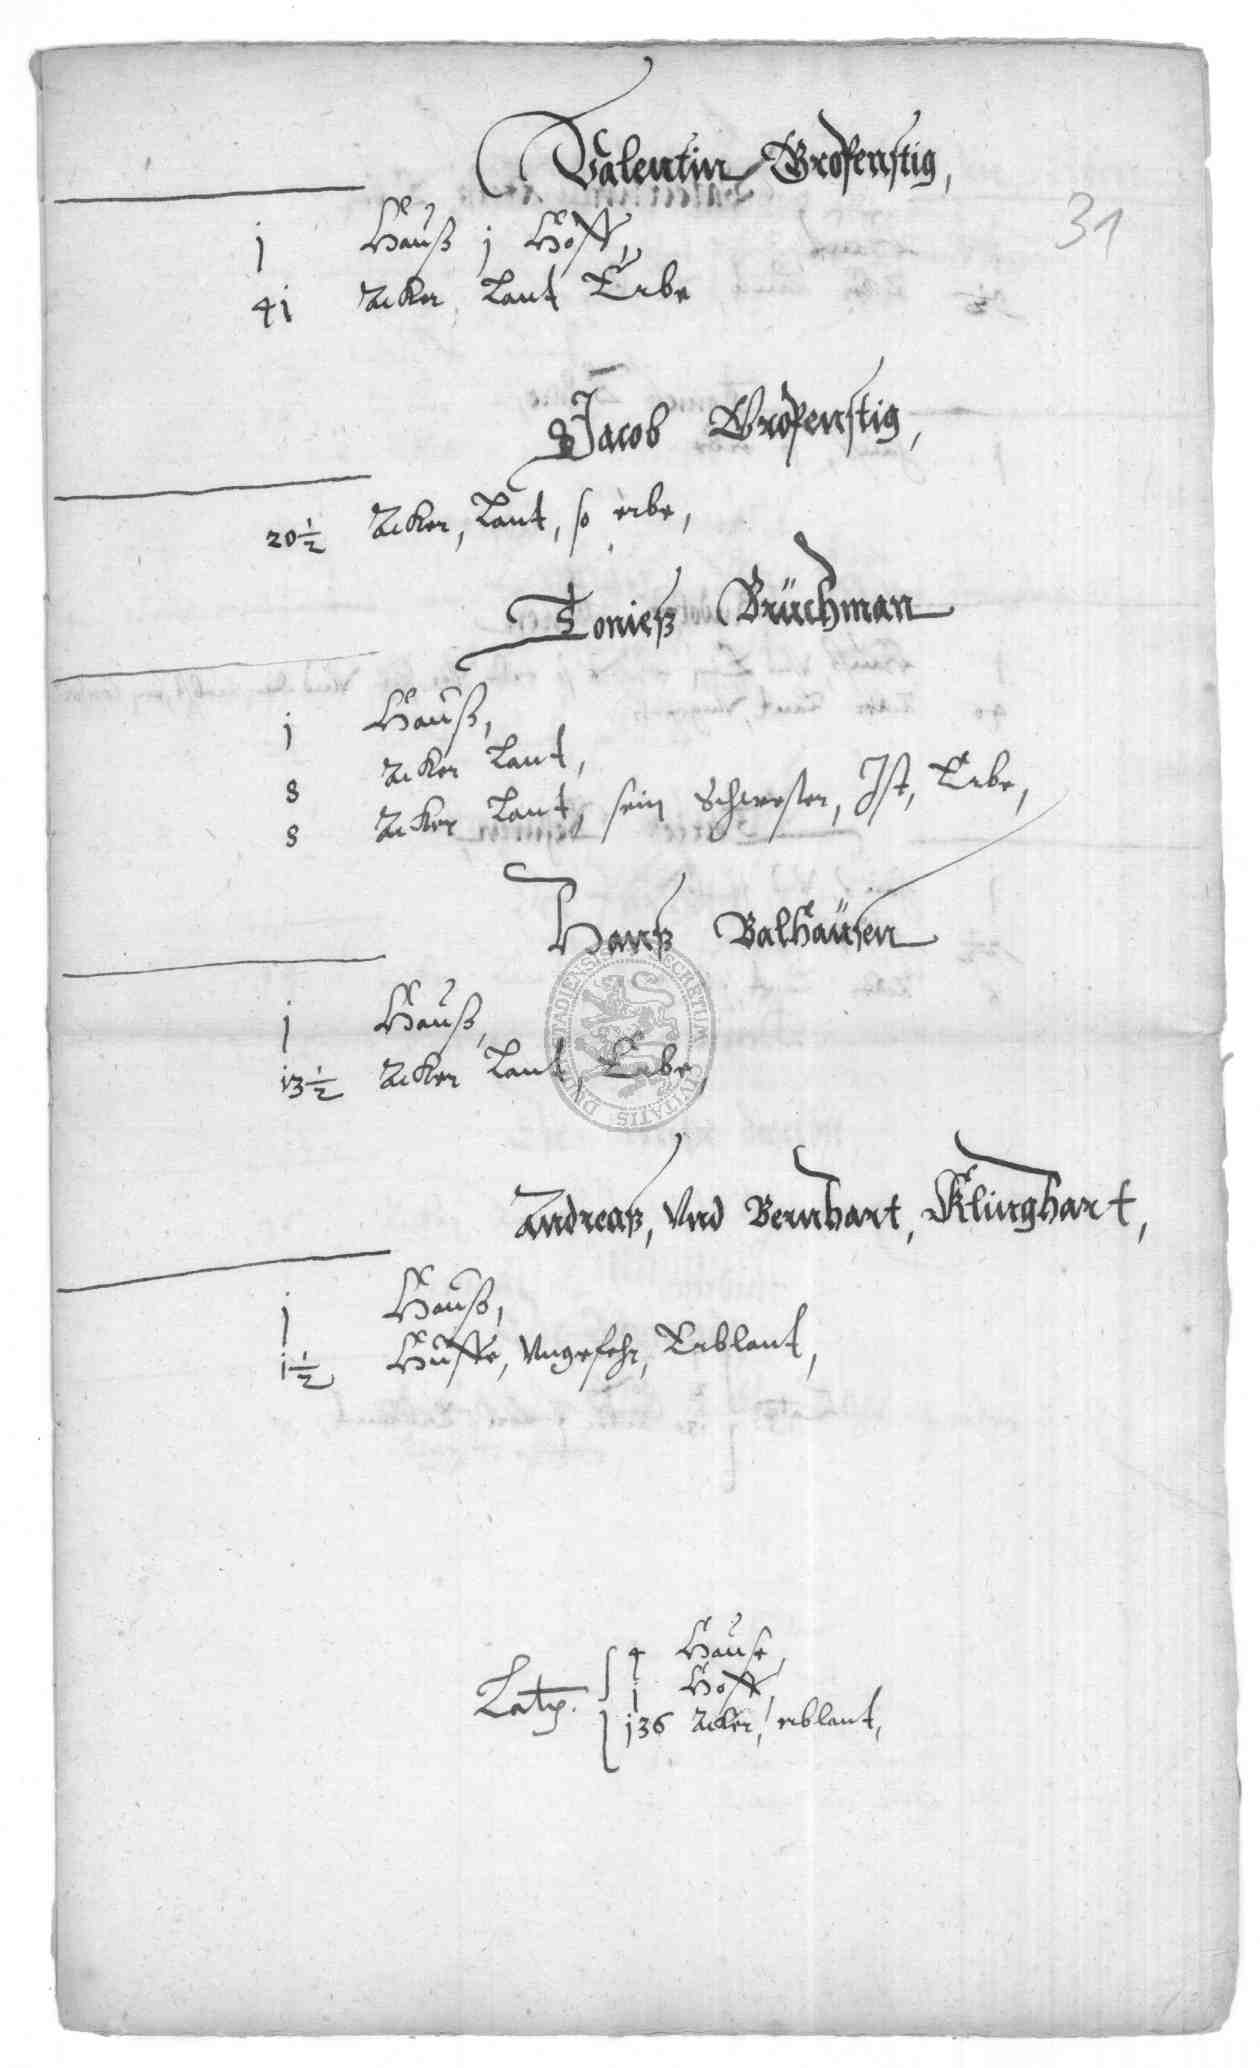 Valentin Grosenstig,
31
j Hauß j Hoff,
4j Acker, Lant Erbe
Jacob Grosenstig,
20 1/2 Acker, Lant, so erbe,
Tonieß Brüchman
j Hauß,
8 Acker Lant,
8 Acker Lant, sein Schwester, Ist, Erbe,
Hanß Balhaüsen
j Hauß,
i3 1/2 Acker Lant, Erbe,
SECRETUM CIVITATIS
Andreaß, Vnd Bernhart, Klinghart,
j Hauß,
i 1/2 Huffe, Vngefehr, Erblant,
Latus.
4 Hause,
j Hoff,
j36 Acker, erblant,